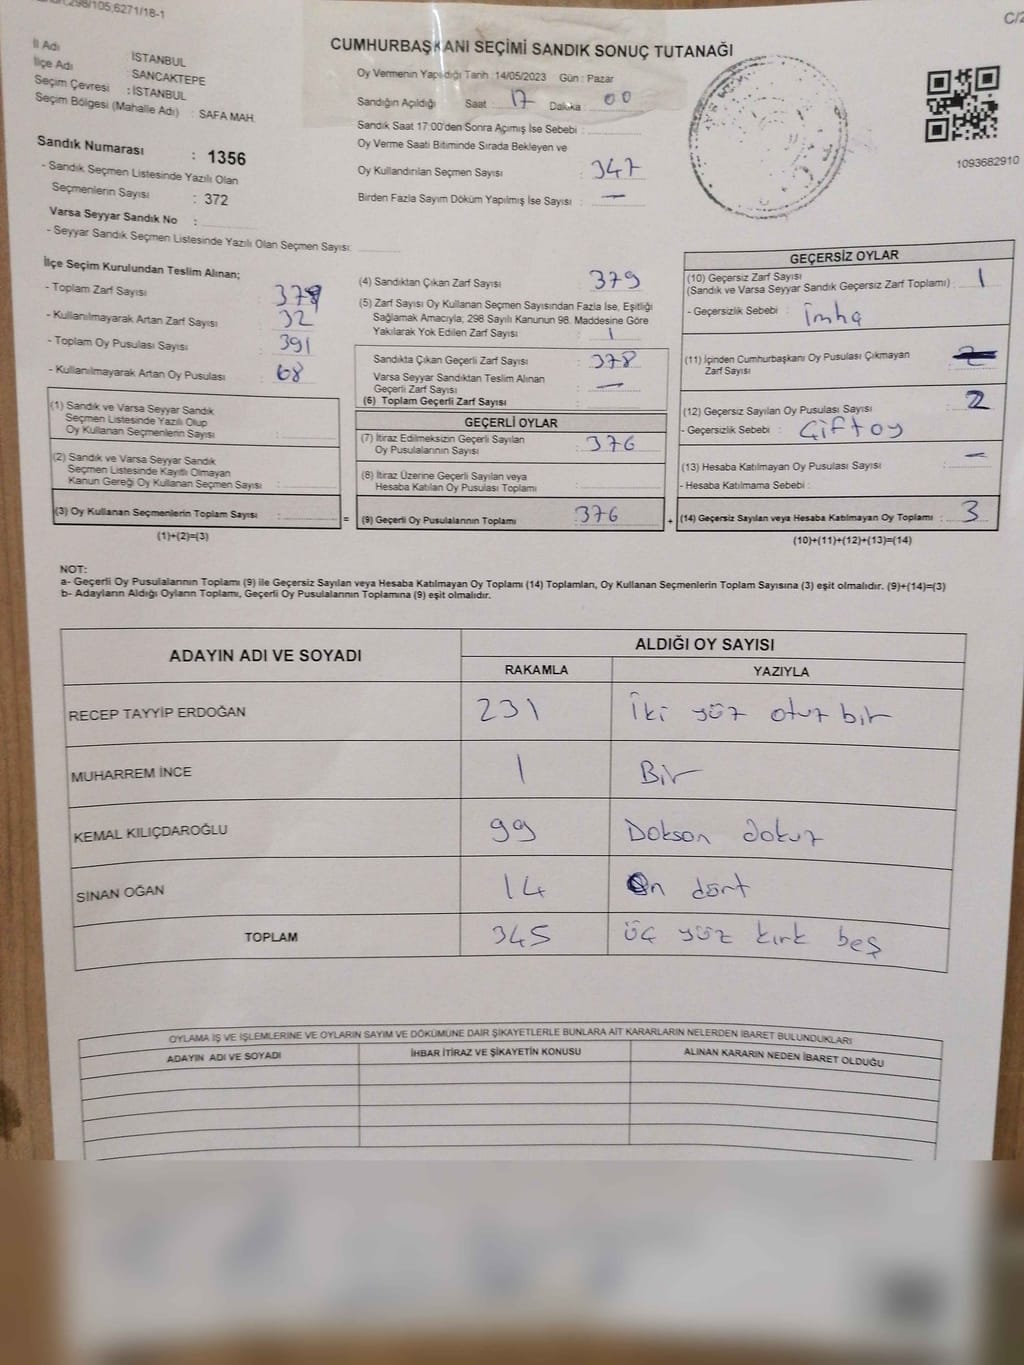 298/105;6271/18-1
CUMHURBAŞKANI SEÇİMİ SANDIK SONUÇ TUTANAĞI
İl Adı : İSTANBUL
İlçe Adı : SANCAKTEPE
Seçim Çevresi : İSTANBUL
Seçim Bölgesi (Mahalle Adı) : SAFA MAH.
Sandık Numarası : 1356
- Sandık Seçmen Listesinde Yazılı Olan
Seçmenlerin Sayısı : 372
Varsa Seyyar Sandık No :
- Seyyar Sandık Seçmen Listesinde Yazılı Olan Seçmen Sayısı:
Oy Vermenin Yapıldığı Tarih :14/05/2023 Gün : Pazar
Sandığın Açıldığı Saat : 17 Dakika : 00
Sandık Saat 17:00'den Sonra Açımış İse Sebebi :
Oy Verme Saati Bitiminde Sırada Bekleyen ve
Oy Kullandırılan Seçmen Sayısı : 347
Birden Fazla Sayım Döküm Yapılmış İse Sayısı : —
1093682910
İlçe Seçim Kurulundan Teslim Alınan;
- Toplam Zarf Sayısı : 379
- Kullanılmayarak Artan Zarf Sayısı : 32
- Toplam Oy Pusulası Sayısı : 391
- Kullanılmayarak Artan Oy Pusulası : 68
(1) Sandık ve Varsa Seyyar Sandık
Seçmen Listesinde Yazılı Olup
Oy Kullanan Seçmenlerin Sayısı :
(2) Sandık ve Varsa Seyyar Sandık
Seçmen Listesinde Kayıtlı Olmayan
Kanun Gereği Oy Kullanan Seçmen Sayısı :
(3) Oy Kullanan Seçmenlerin Toplam Sayısı : =
(1)+(2)=(3)
(4) Sandıktan Çıkan Zarf Sayısı : 379
(5) Zarf Sayısı Oy Kullanan Seçmen Sayısından Fazla İse, Eşitliği
Sağlamak Amacıyla; 298 Sayılı Kanunun 98. Maddesine Göre
Yakılarak Yok Edilen Zarf Sayısı : 1
Sandıkta Çıkan Geçerli Zarf Sayısı : 378
Varsa Seyyar Sandıktan Teslim Alınan
Geçerli Zarf Sayısı : —
(6) Toplam Geçerli Zarf Sayısı :
GEÇERLİ OYLAR
(7) İtiraz Edilmeksizin Geçerli Sayılan
Oy Pusulalarının Sayısı : 376
(8) İtiraz Üzerine Geçerli Sayılan veya
Hesaba Katılan Oy Pusulası Toplamı :
(9) Geçerli Oy Pusulalarının Toplamı : 376 +
GEÇERSİZ OYLAR
(10) Geçersiz Zarf Sayısı
(Sandık ve Varsa Seyyar Sandık Geçersiz Zarf Toplamı) : 1
- Geçersizlik Sebebi : İmha
(11) İçinden Cumhurbaşkanı Oy Pusulası Çıkmayan
Zarf Sayısı :
(12) Geçersiz Sayılan Oy Pusulası Sayısı : 2
- Geçersizlik Sebebi : Çift oy
(13) Hesaba Katılmayan Oy Pusulası Sayısı : —
- Hesaba Katılmama Sebebi :
(14) Geçersiz Sayılan veya Hesaba Katılmayan Oy Toplamı : 3
(10)+(11)+(12)+(13)=(14)
NOT:
a- Geçerli Oy Pusulalarının Toplamı (9) ile Geçersiz Sayılan veya Hesaba Katılmayan Oy Toplamı (14) Toplamları, Oy Kullanan Seçmenlerin Toplam Sayısına (3) eşit olmalıdır. (9)+(14)=(3)
b- Adayların Aldığı Oyların Toplamı, Geçerli Oy Pusulalarının Toplamına (9) eşit olmalıdır.
ADAYIN ADI VE SOYADI ALDIĞI OY SAYISI
RAKAMLA YAZIYLA
RECEP TAYYİP ERDOĞAN 231 İki yüz otuz bir
MUHARREM İNCE 1 Bir
KEMAL KILIÇDAROĞLU 99 Doksan dokuz
SİNAN OĞAN 14 On dört
TOPLAM 345 üç yüz kırk beş
OYLAMA İŞ VE İŞLEMLERİNE VE OYLARIN SAYIM VE DÖKÜMÜNE DAİR ŞİKAYETLERLE BUNLARA AİT KARARLARIN NELERDEN İBARET BULUNDUKLARI
ADAYIN ADI VE SOYADI İHBAR İTİRAZ VE ŞİKAYETİN KONUSU ALINAN KARARIN NEDEN İBARET OLDUĞU